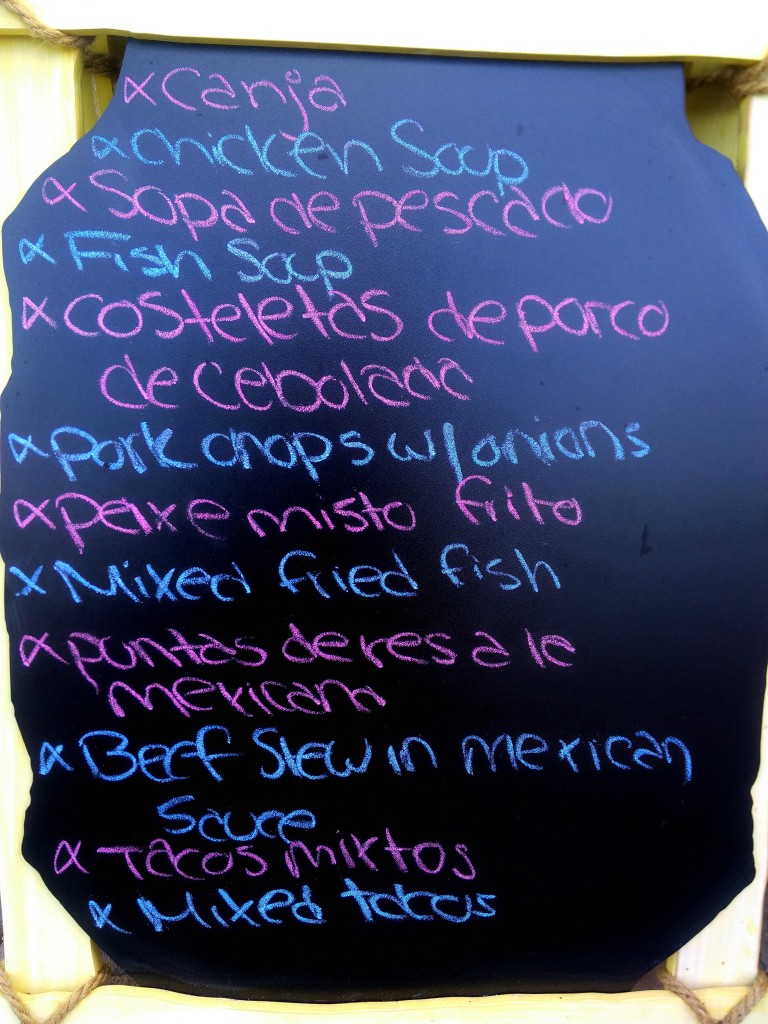 × Canja
× Chicken Soup
× Sopa de pescado
× Fish Soup
× costeletas de porco
de cebolada
× pork chops w/onions
× peixe misto frito
× Mixed fried fish
× puntas de res a la
mexicana
× Beef Stew in mexican
Sauce
× Tacos mixtos
× Mixed tacos